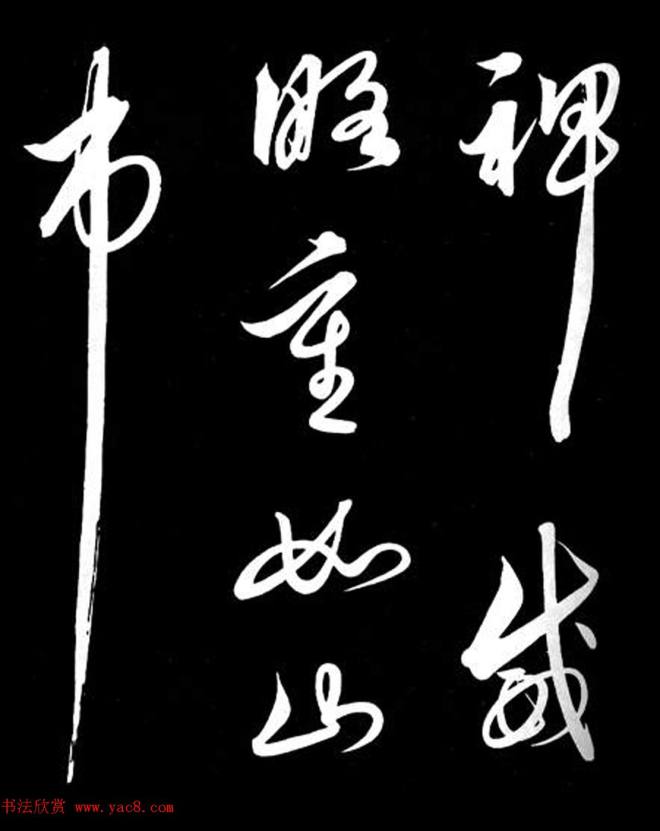 神威
重如山
书法欣赏 www.yac8.com